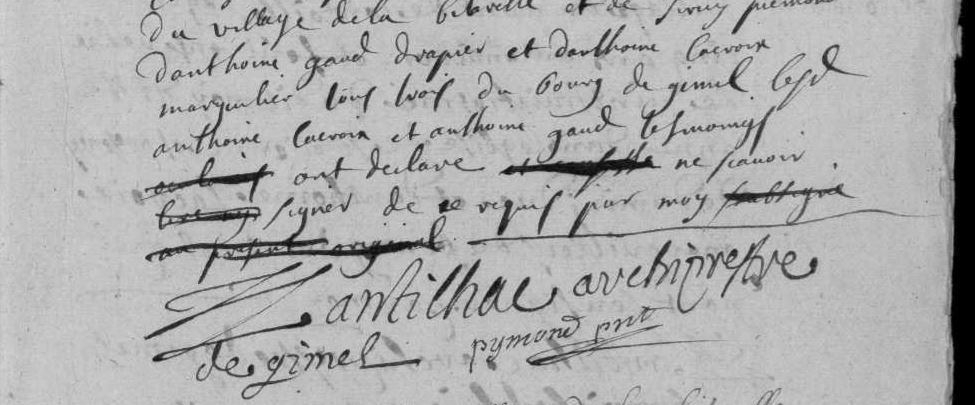 du village de la et de
danthoine gaud drapier et danthoine lacroix
marguilier tous trois du bourg de gimel lesd
anthoine lacroix et anthoine gaud tesmoings
ont declare ne scavoir
signer de ce requis par moy soubsigné
au present original
Lantilhac archiprestre
de gimel pymond pnt